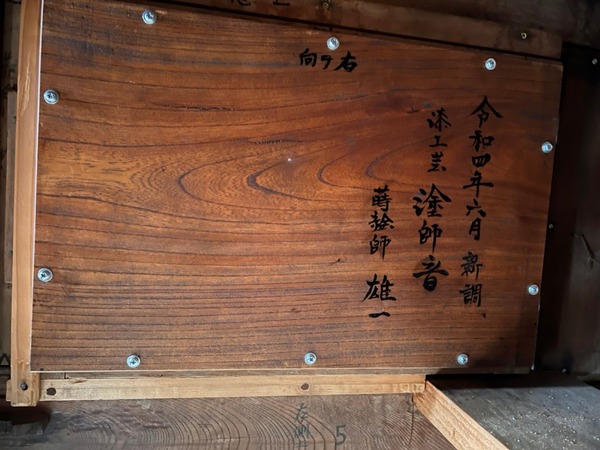 向ヶ右
令和四年六月 新調、
漆工芸 塗師音
蒔絵師 雄一
左側
5